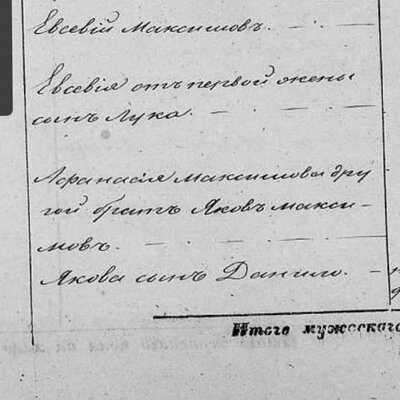 Евсевій Максимовъ.
Евсевія отъ первой жены
сынъ Лука.
Афанасія Максимова дру
гой братъ Яковъ Макси-
мовъ.
Якова сынъ Данило.
Итого мужескаго